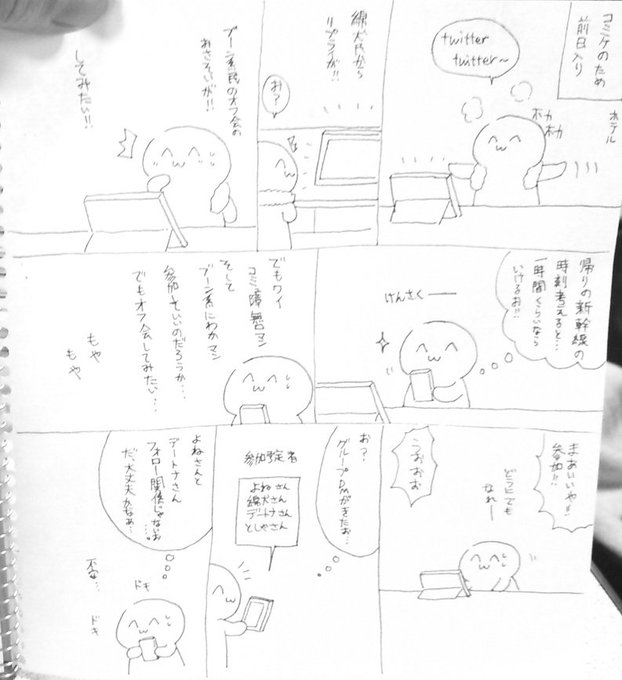 コミケのため
前日入り
ホテル
twitter
twitter~
ホカ
ホカ
綿犬氏から
リプライが!!
お?
ブーン系民のオフ会の
おさそいが!!
してみたい!!
帰りの新幹線の
時刻考えると…
一時間くらいなら
いけるお!!
けんさくー
でもワイ
コミュ障マン
そして
ブーン系にわかマン
参加していいのだろうか…
でもオフ会してみたい…
もや
もや
まあいいや!!
参加!!
どうにでも
なれー
うおおお
お?
グループDMがきたお…
参加予定者
よねさん
綿犬さん
デートナさん
としやさん
よねさんと
デートナさん
フォロー関係じゃないお…
だ、大丈夫かなぁ…
不安…
ドキ
ドキ